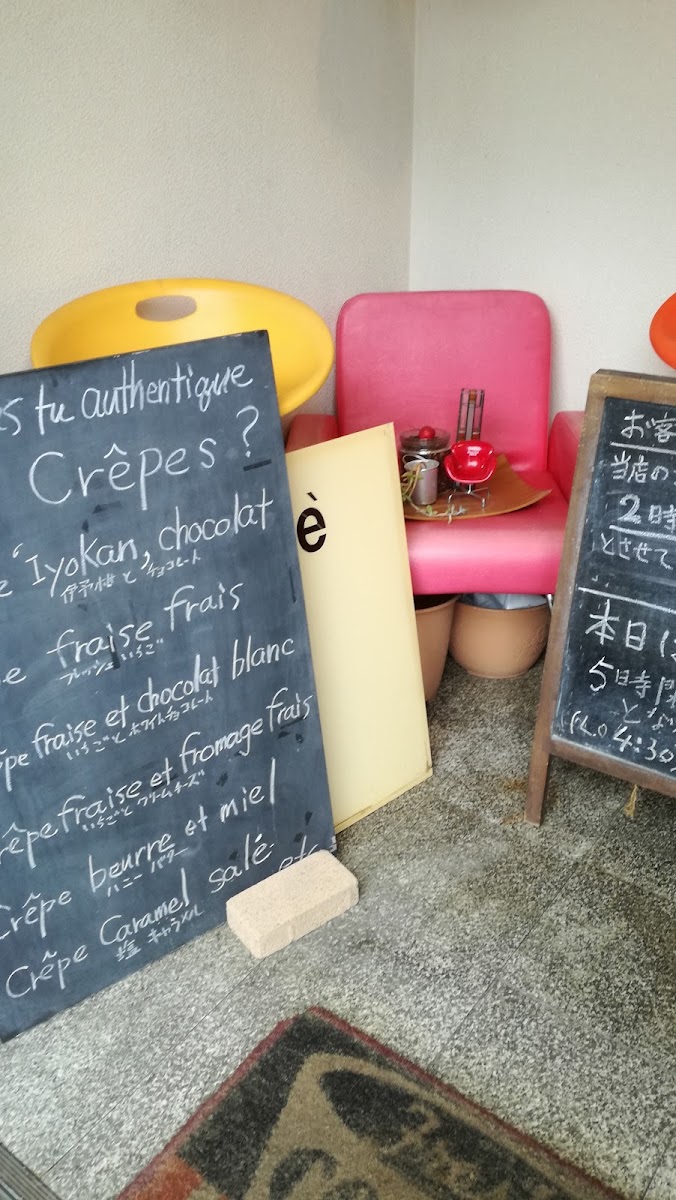 es tu authentique
Crêpes ?
e 'Iyokan, chocolat
伊予柑 と チョコレート
e fraise frais
フレッシュ いちご
êpe fraise et chocolat blanc
いちごと ホワイトチョコレート
rêpe fraise et fromage frais
いちごと クリームチーズ
Crêpe beurre et miel
ハニー バター
Crêpe Caramel salé etc
塩 キャラメル
è
お客
当店の
2時
とさせて
本日は
5時閉
とな
(L.O 4:30